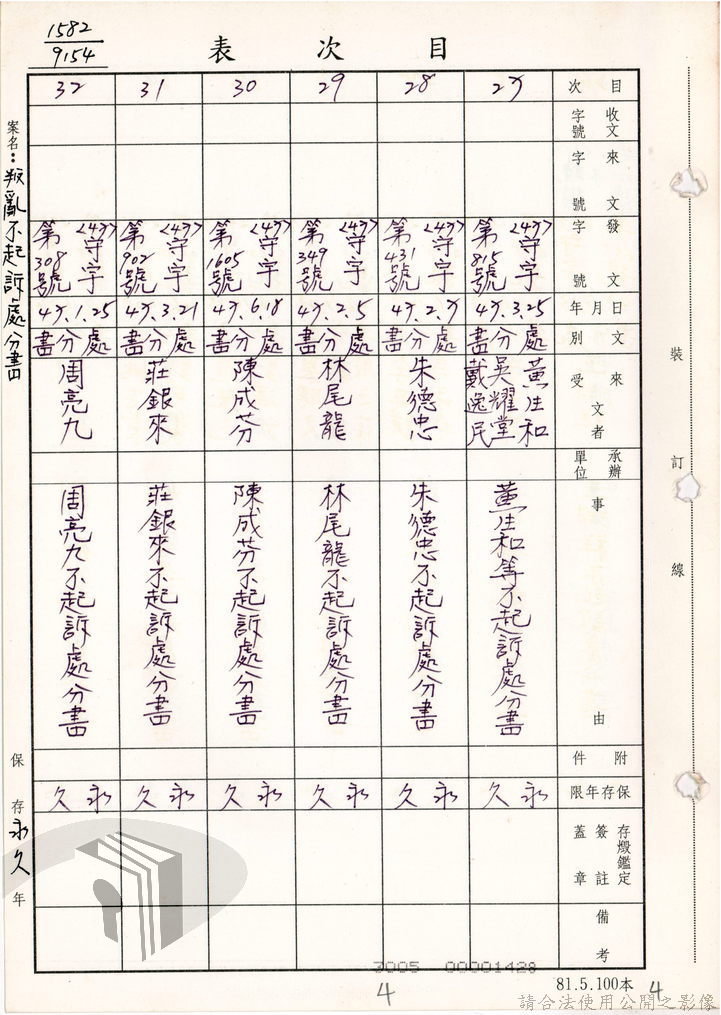 1582
9154
目次表
案名：叛亂不起訴處分書
保存永久年
目次
收文字號
來文字號
發文字號
年月日
文別
來受文者
承辦單位
事由
附件
保存年限
存燬鑑定簽註蓋章
備考
27
<47>守字第815號
47.3.25
處分書
黃生和
吳耀堂
戴逸民
黃生和等不起訴處分書
永久
28
<47>守字第431號
47.2.7
處分書
朱德忠
朱德忠不起訴處分書
永久
29
<47>守字第349號
47.2.5
處分書
林尾龍
林尾龍不起訴處分書
永久
30
<47>守字第1605號
47.6.18
處分書
陳成芬
陳成芬不起訴處分書
永久
31
<47>守字第902號
47.3.21
處分書
莊銀來
莊銀來不起訴處分書
永久
32
<47>守字第308號
47.1.25
處分書
周亮九
周亮九不起訴處分書
永久
裝訂線
3005 00001428
4
81.5.100本
4
請合法使用公開之影像